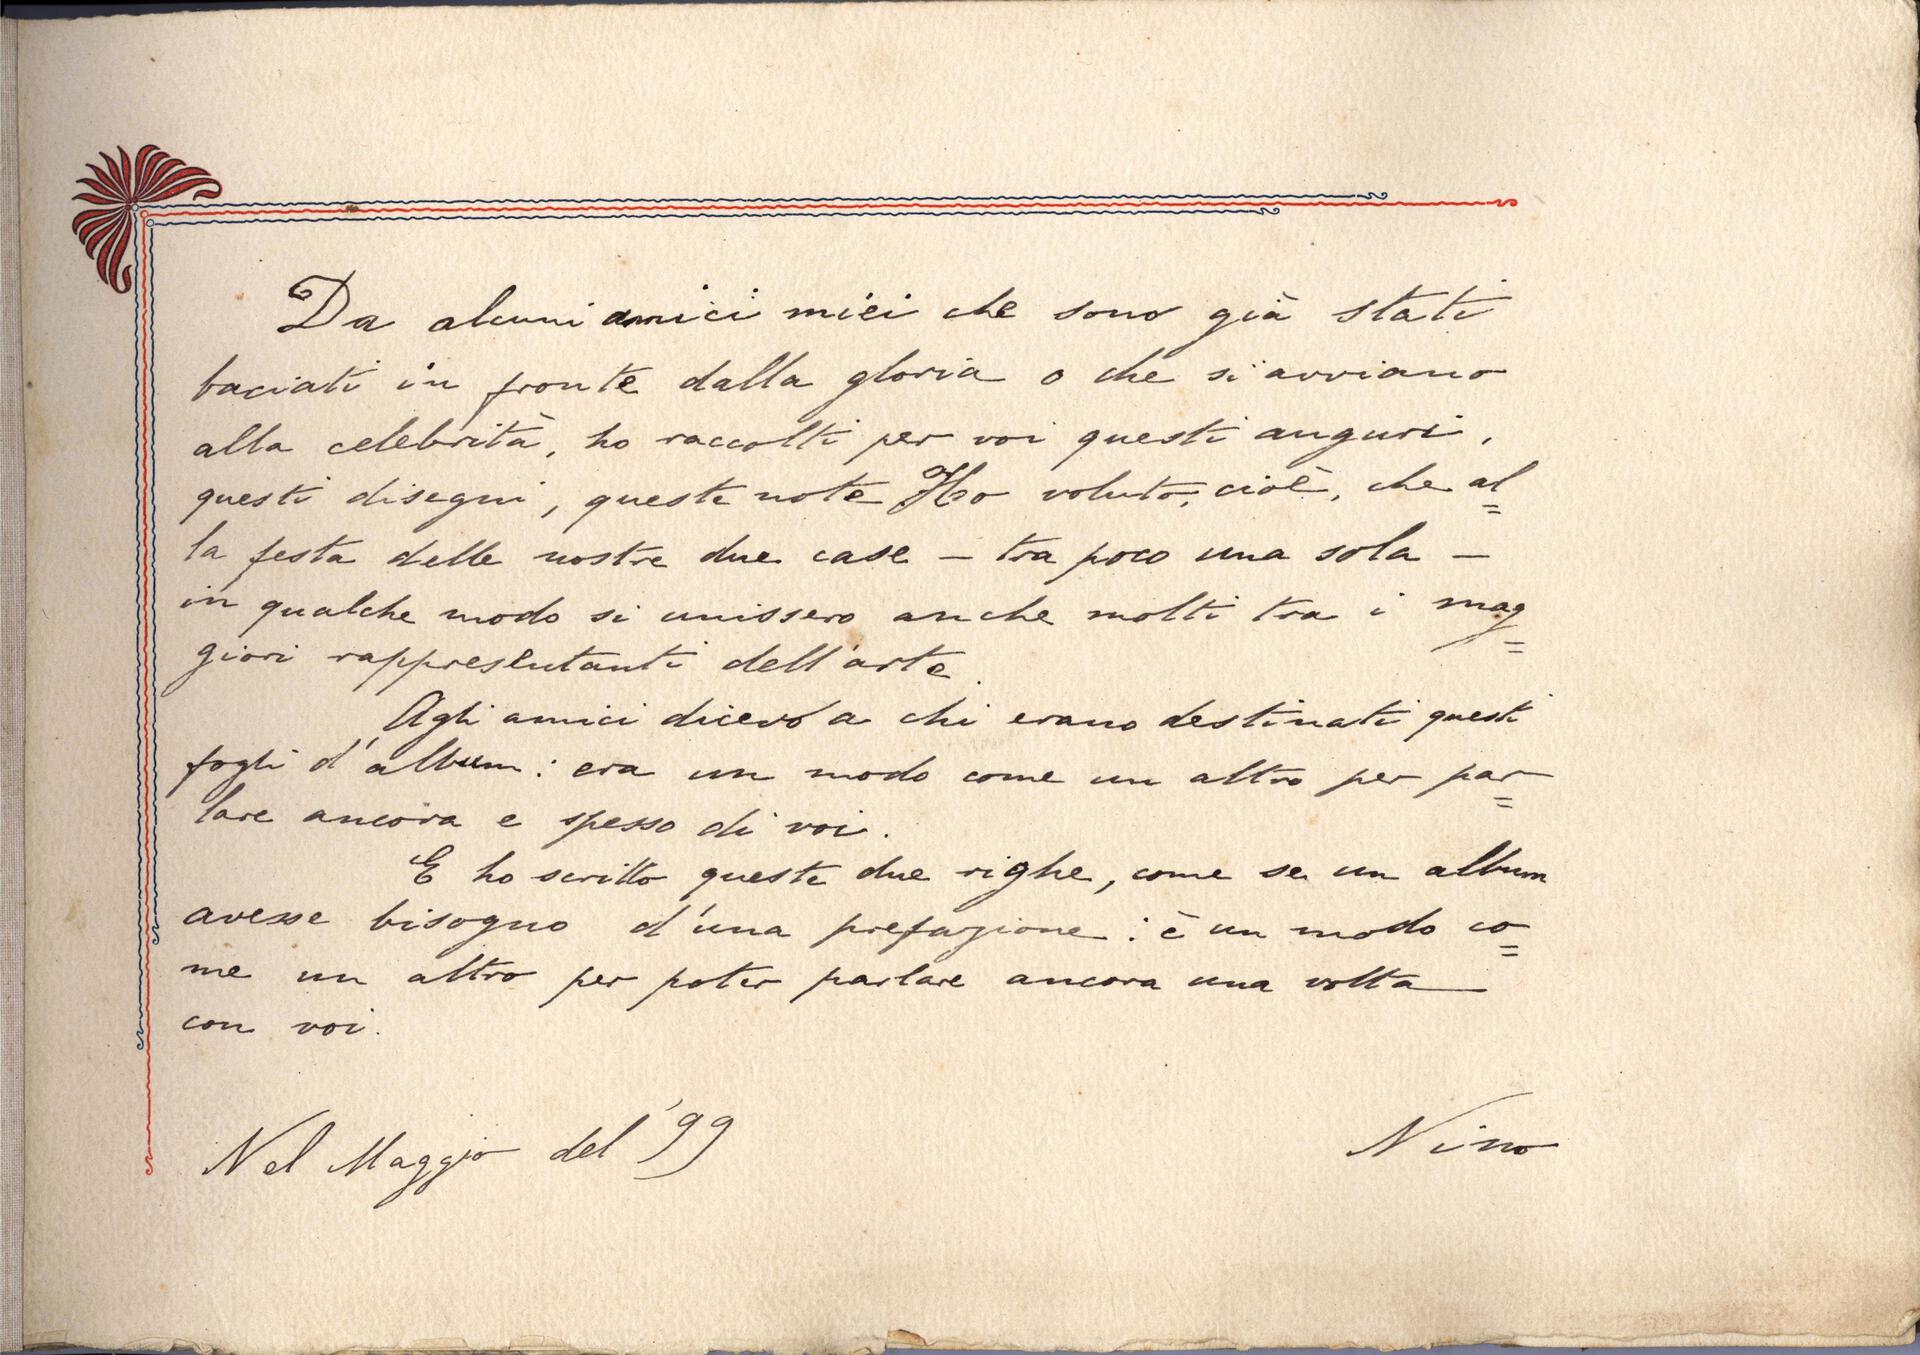 Da alcuni amici miei che sono già stati
baciati in fronte dalla gloria o che si avviano
alla celebrità, ho raccolti per voi questi auguri,
questi disegni, queste note Ho voluto, cioè, che al=
la festa delle nostre due case – tra poco una sola –
in qualche modo si unissero anche molti tra i mag=
giori rappresentanti dell'arte.
Agli amici dicevo a chi erano destinati questi
fogli d'album: era un modo come un altro per par=
lare ancora e spesso di voi.
E ho scritto queste due righe, come se un album
avesse bisogno d'una prefazione: è un modo co=
me un altro per poter parlare ancora una volta
con voi.
Nel Maggio del '99
Nino